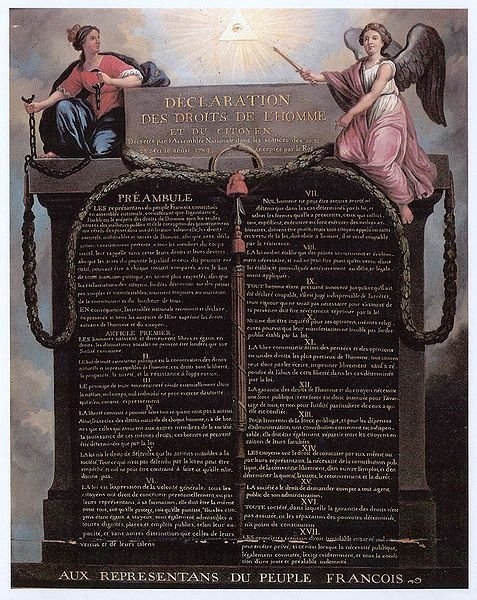 DÉCLARATION
DES DROITS DE L'HOMME
ET DU CITOYEN,
Décretés par l'Assemblée Nationale dans les séances des 20, 21,
23, 24 et 26 août 1789, acceptés par le Roi
PRÉAMBULE
LES représentans du peuple François, constitués
en assemblée nationale, considérant que l'ignorance,
l'oubli ou le mépris des droits de l'homme sont les seules
causes des malheurs publics et de la corruption des gouvernemens
ont résolu d'exposer dans une déclaration solemnelle, les droits
naturels, inaliénables et sacrés de l'homme, afin que cette décla-
ration, constamment présente à tous les membres du corps
social, leur rappelle sans cesse leurs droits et leurs devoirs,
afin que les actes du pouvoir législatif et ceux du pouvoir exé-
cutif, pouvant être à chaque instant comparés avec le but
de toute institution politique, en soient plus respectés; afin que
les réclamations des citoyens, fondées désormais sur des principes
simples et incontestables, tournent toujours au maintien
de la constitution et du bonheur de tous.
EN conséquence, l'assemblée nationale reconnoît et déclare
en présence et sous les auspices de l'Être suprême les droits
suivans de l'homme et du citoyen.
ARTICLE PREMIER.
LES hommes naissent et demeurent libres et égaux en
droits, les distinctions sociales ne peuvent être fondées que sur
l'utilité commune.
II.
LE but de toute association politique est la conservation des droits
naturels et imprescriptibles de l'homme; ces droits sont la liberté,
la propriété, la sureté, et la résistance à l'oppression.
III.
LE principe de toute souveraineté réside essentiellement dans
la nation, nul corps, nul individu ne peut exercer d'autorité
qui n'en émane expressement.
IV.
LA liberté consiste à pouvoir faire tout ce qui ne nuit pas à autrui.
Ainsi, l'exercice des droits naturels de chaque homme, n'a de bor-
nes que celles qui assurent aux autres membres de la société
la jouissance de ces mêmes droits; ces bornes ne peuvent
être déterminées que par la loi.
V.
LA loi n'a le droit de défendre que les actions nuisibles à la
société. Tout ce qui n'est pas défendu par la loi ne peut être
empêché, et nul ne peut être contraint à faire ce qu'elle n'or-
donne pas.
VI.
LA loi est l'expression de la volonté générale; tous les
citoyens ont droit de concourir personnellement, ou par
leurs représentans, à sa formation; elle doit être la même
pour tous, soit qu'elle protège, soit qu'elle punisse. Tous les cito-
yens étant égaux à ses yeux, sont également admissibles à
toutes dignités, places et emplois publics, selon leur capa-
cité, et sans autres distinctions que celles de leurs
vertus et de leurs talens.
VII.
NUL homme ne peut être accusé, arrêté ni
détenu que dans les cas déterminés par la loi, et
selon les formes qu'elle a prescrites, ceux qui sollici-
tent, expédient, exécutent ou font exécuter des ordres ar-
bitraires, doivent être punis; mais tout citoyen appelé ou saisi
en vertu de la loi, doit obéir à l'instant, il se rend coupable
par la résistance.
VIII.
LA loi ne doit établir que des peines strictement et évidem-
ment nécessaires, et nul ne peut être puni qu'en vertu d'une
loi établie et promulguée antérieurement au délit, et légale-
ment appliquée.
IX.
TOUT homme étant présumé innocent jusqu'à ce qu'il ait
été déclaré coupable, s'il est jugé indispensable de l'arrêter,
toute rigueur qui ne serait pas nécessaire pour s'assurer de
sa personne doit être sévèrement réprimée par la loi.
X.
NUL ne doit être inquiété pour ses opinions, mêmes religi-
euses pourvu que leur manifestation ne trouble pas l'ordre
public établi par la loi.
XI.
LA libre communication des pensées et des opinions
est un des droits les plus précieux de l'homme; tout citoyen
peut donc parler, écrire, imprimer librement: sauf à ré-
pondre de l'abus de cette liberté dans les cas déterminés
par la loi.
XII.
LA garantie des droits de l'homme et du citoyen nécessite
une force publique; cette force est donc instituée pour l'avan-
tage de tous, et non pour l'utilité particulière de ceux a qui
elle est confiée.
XIII.
POUR l'entretien de la force publique, et pour les dépenses
d'administration, une contribution commune est indispen-
sable; elle doit être également répartie entre les citoyens en
raison de leurs facultés.
XIV.
LES citoyens ont le droit de constater par eux même ou
par leurs représentans, la nécessité de la contribution publi-
que, de la consentir librement, d'en suivre l'emploi, et d'en
déterminer la quotité, l'assiette, le recouvrement et la durée.
XV.
LA société a le droit de demander compte à tout agent
public de son administration.
XVI.
TOUTE société, dans laquelle la garantie des droits n'est
pas assurée, ni la séparation des pouvoirs déterminée,
n'a point de constitution.
XVII.
LES propriétés étant un droit inviolable et sacré, nul ne
peut en être privé, si ce n'est lorsque la nécessité publique,
légalement constatée, l'exige évidemment, et sous la condi-
tion d'une juste et préalable indemnité.
AUX REPRESENTANS DU PEUPLE FRANCOIS